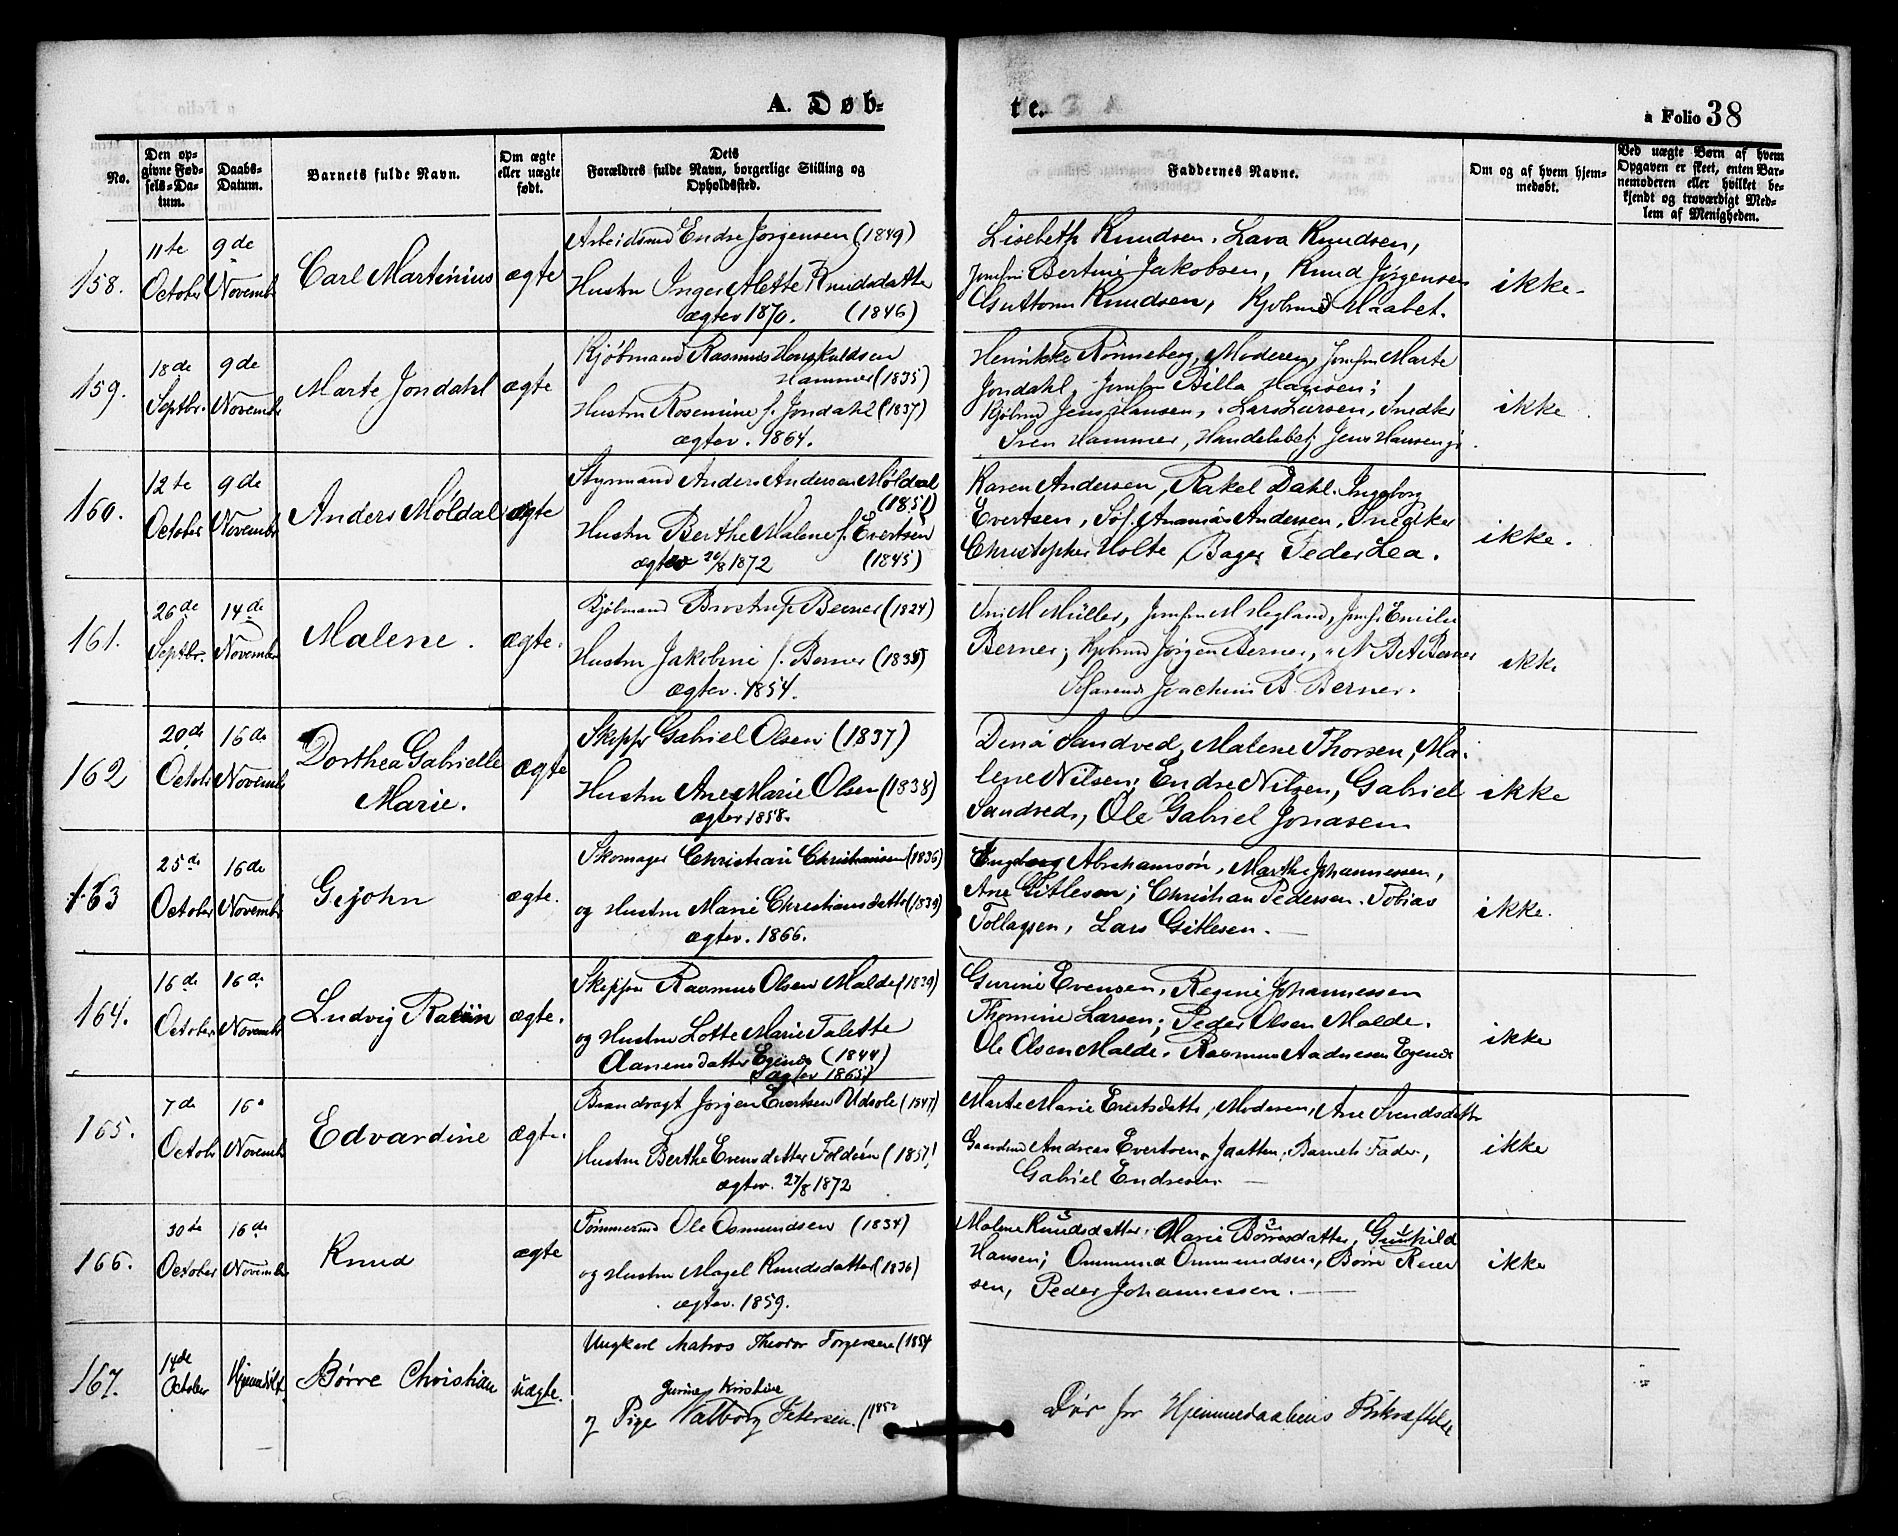 A. Døb-
te.
a Folio 38
No.
Den op-
givne Fød-
sels-Da-
tum.
Daabs-
Datum.
Barnets fulde Navn.
Om ægte
eller uægte
født.
Dets
Forældres fulde Navn, borgerlige Stilling og
Opholdssted.
Faddernes Navne.
Om og af hvem hjem-
medøbt.
Ved uægte Børn af hvem
Opgaven er skeet, enten Bar-
nemoderen eller hvilket be-
kjendt og troværdigt Med-
lem af Menigheden.
158.
11te
October
9de
Novembr
Carl Martinius
ægte
Arbeidsmd Endre Jørgensen (1849)
Hustru Inger Alette Knudsdatter
ægtev 1870. (1846)
Lisebeth Knudsen, Lava Knudsen,
Jomfru Bertine Jakobsen, Knud Jørgensen
Guttorm Knudsen, Kjøbmd Haabet.
ikke.
159.
18de
Septbr.
9de
Novembr
Marte Jondahl
ægte
Kjøbmand Rasmus Houskuldsen
Hammer (1835)
Hustru Rosemine f. Jondahl (1837)
ægtev. 1864.
Henrikke Rønneberg, Moderen, Jomfru Marte
Jondahl, Jomfru Billa Hansen;
Kjøbmd Jens Hansen, Lars Larsen, Snedker
Sven Hammer, Handelsbetj Jens Hansen jr
ikke
160.
12te
October
9de
Novembr
Anders Møldal
ægte
Styrmand Anders Andersen Møldal
(1851)
Hustru Berthe Malene f. Evertsen
ægtev 20/8 1872 (1845)
Karen Andersen, Rakel Dahl, Ingeborg
Evertsen, Søf. Ananias Andersen, Snedker
Christopher Holte, Bager Peder Lea.
ikke.
161.
26de
Septbr.
14de
November
Malene.
ægte.
Kjøbmand Brostrup Berner (1824)
Hustru Jakobine f. Berner (1835)
ægtev. 1854.
M Müller, Jomfru M Hegland, Jomf. Emilie
Berner; Kjøbmd Jørgen Berner, N B A Berner
Joachim B. Berner.
ikke
162
20de
Octobr
16de
Novembr
Dorthea Gabrielle
Marie.
ægte
Skipper Gabriel Olsen (1837)
Hustru Ane Marie Olsen (1838)
ægtev 1858.
Dina Sandved, Malene Thorsen, Ma-
lene Nilsen; Endre Nilsen, Gabriel
Sandved, Ole Gabriel Jonasen
ikke
163
25de
October
16de
Novembr
Gejohn
ægte.
Skomager Christian Christiansen (1836)
og Hustru Marie Christiansdatter (1839)
ægtev. 1866.
Engborg Abrahamson, Marthe Johannessen,
Ane Gitlesen; Christian Pedersen, Tobias
Tollagsen, Lars Gitlesen.
ikke.
164.
16de
October
16de
Novembr
Ludvig
ægte.
Skipper Rasmus Olsen Malde (1839)
og Hustru Lotte Marie Talette
Aanensdatter Egenes (1844)
ægtev 1865)
Gurine Evensen, Regine Johannessen
Thomine Larsen; Peder Olsen Malde.
Ole Olsen Malde. Rasmus Aadnesen Egenes
ikke
165.
7de
Octobr
16
Novembr
Edvardine
ægte.
Brandvagt Jørgen Evertsen Udsole (1847)
Hustru Berthe Evensdatter Foldøen (1851)
ægtev. 27/8 1872
Marte Marie Evertsdatter, Moderen, Ane Svendsdatter
Gaardmd Andreas Evertsen, Barnets Fader,
Gabriel Endresen
ikke
166.
30te
October
16de
November
Knud
ægte
Tømmermd Ole Osmundsen (1834)
og Hustru Magel Knudsdatter (1836)
ægtev. 1859.
Malene Knudsdatter, Marie Børresdatter, Gunhild
Hansen; Ommund Ommundsen, Børre Reier-
sen, Peder Johannessen.
ikke
167.
14de
October
Hjemdøbt
Børre Christian
uægte.
Ungkarl Matros Theodor Torgersen (1854
Gurine Kirstine
og Pige Valborg Petersen. (1852
Død før Hjemmedaabens Bekræftelse